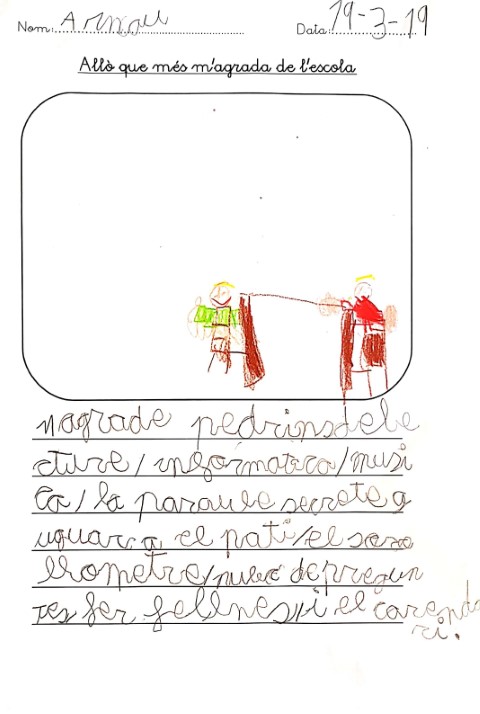 Nom: Arnau Data: 19-3-19
Allò que més m'agrada de l'escola
nagrade pedrinsdele
cture/informatica/musi
ca/la paraule secrete g
uguar a el pati/el
llometre/nube de pregun
tes fer fellnes/i el carenda
ri.